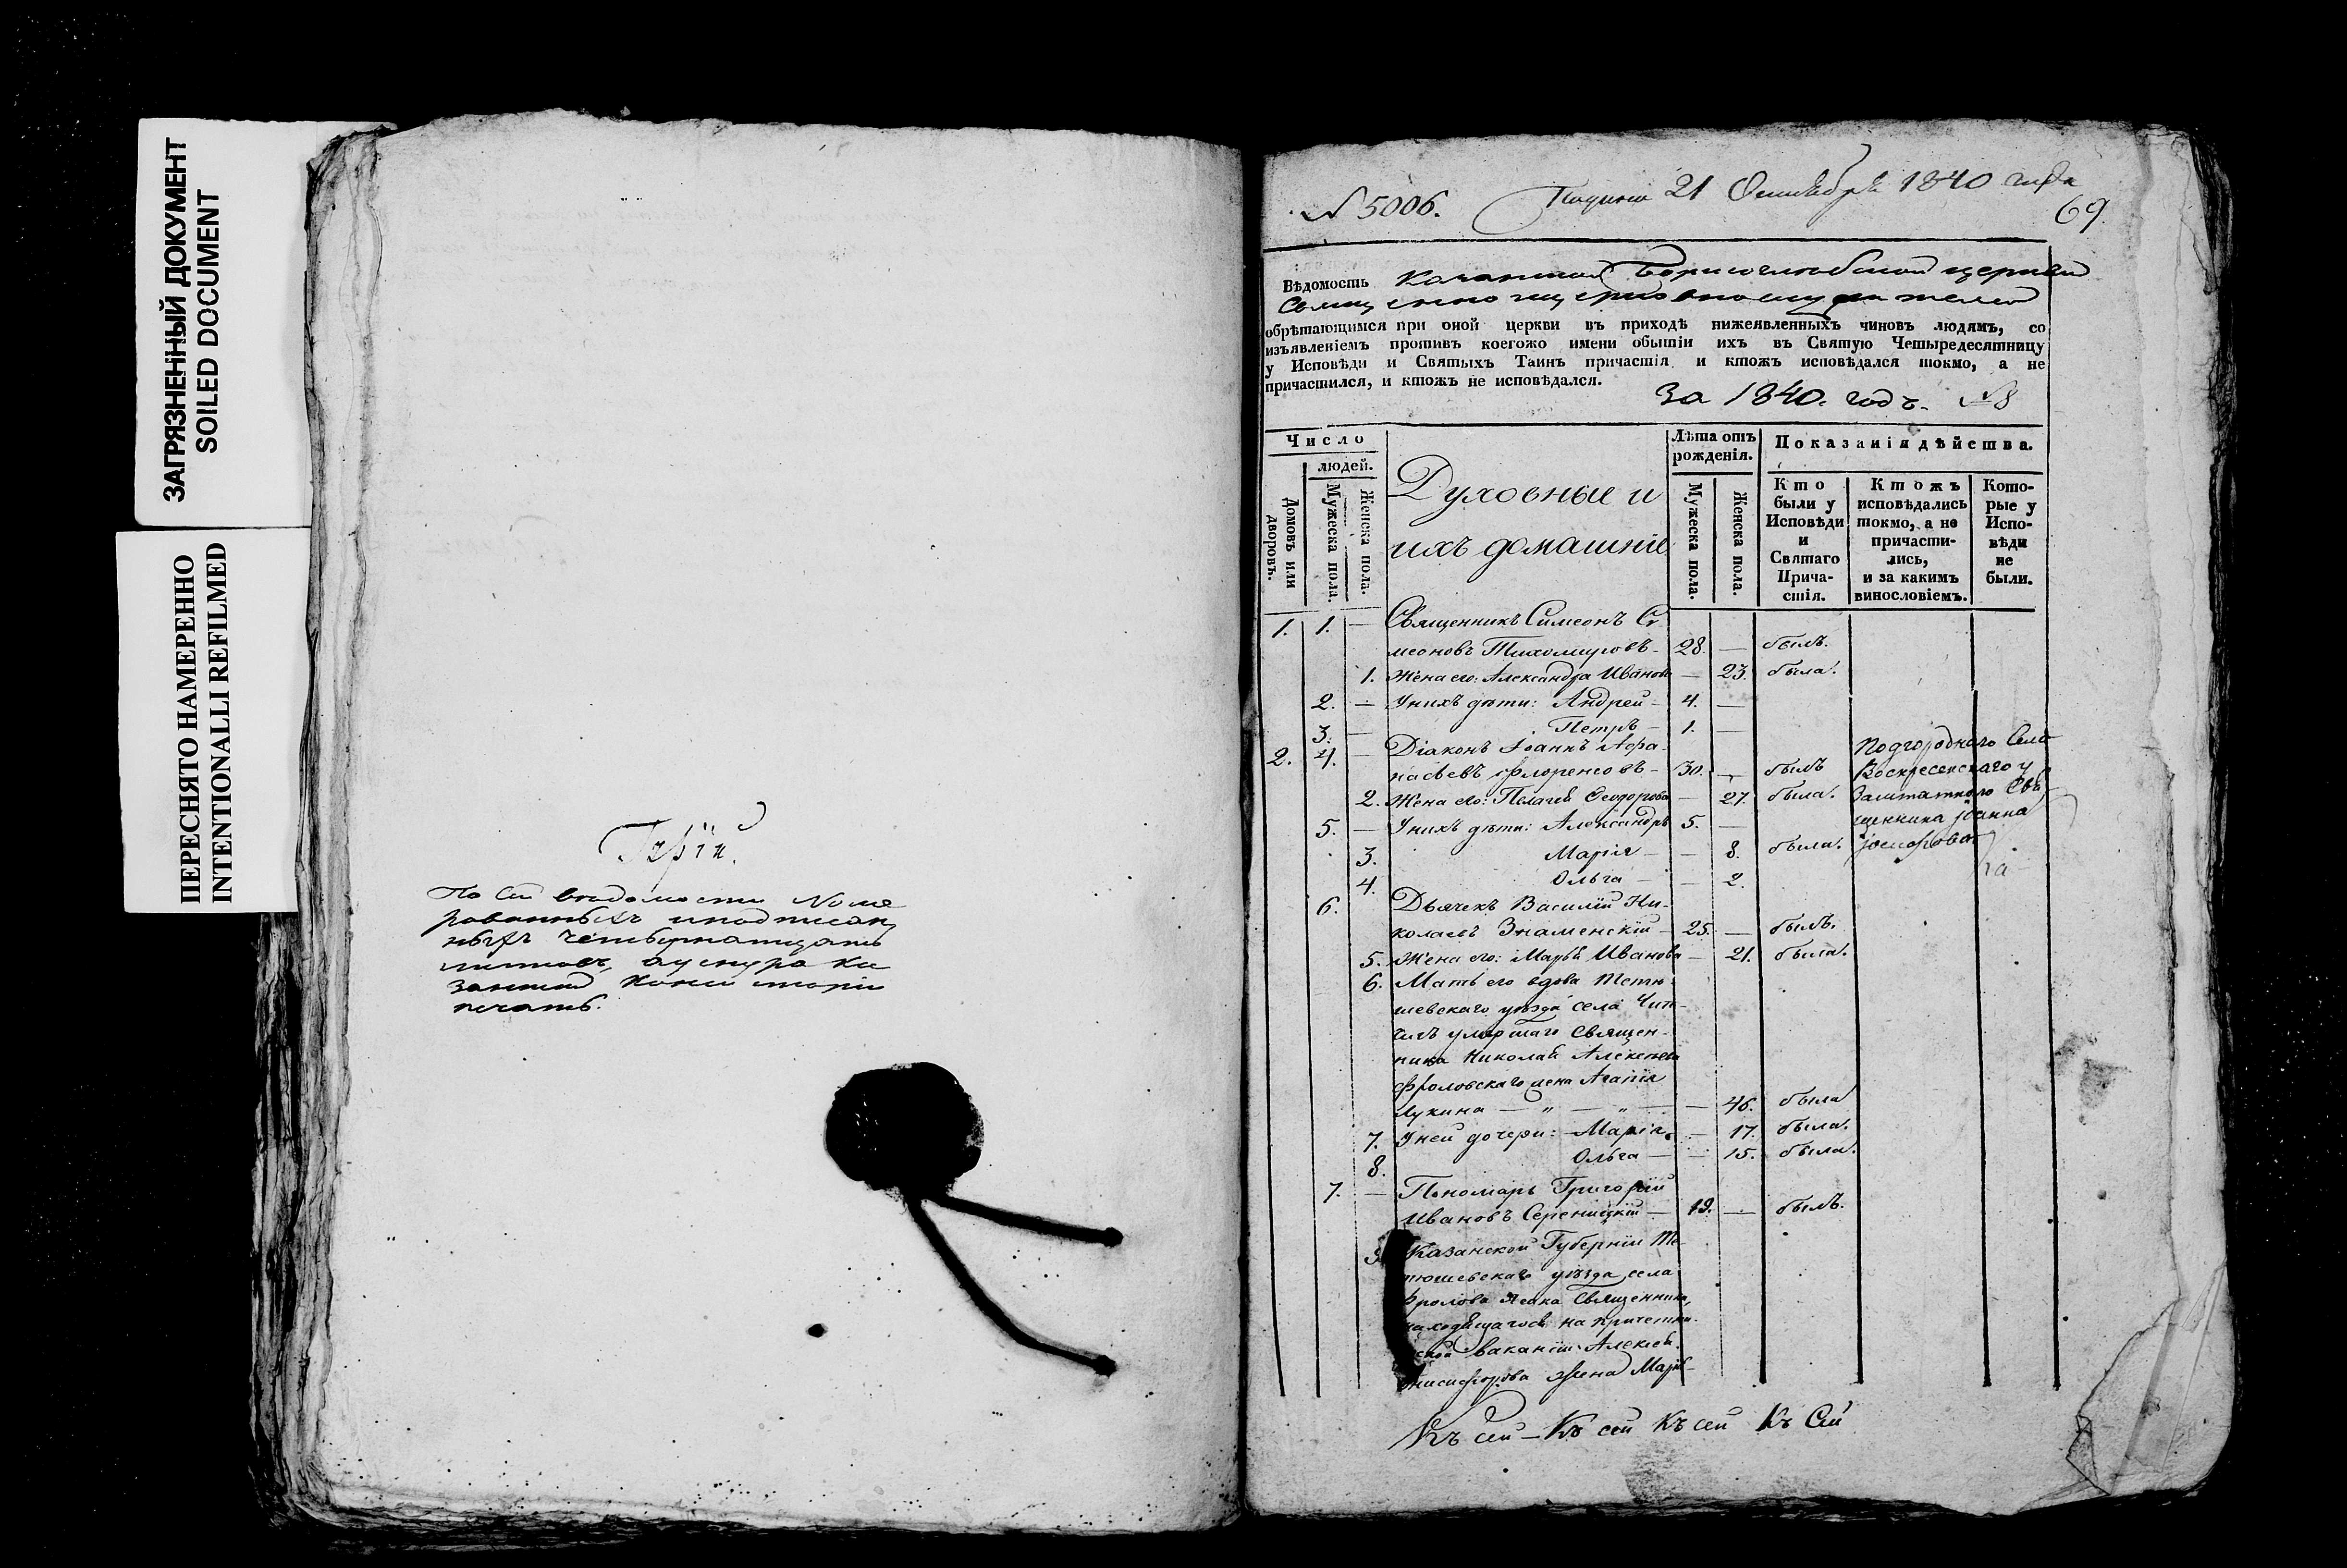 ЗАГРЯЗНЕННЫЙ ДОКУМЕНТ
SOILED DOCUMENT
ПЕРЕСНЯТО НАМЕРЕННО
INTENTIONALLI REFILMED
По сей ведомости Номе
рованныхъ и подписан
ныхъ четырнатцать
листовъ, а у снура ка
занной Конси сторіи
печать.
№ 5006. 21 1840 года
69.
Вѣдомость Борисоглѣбской церкви
обрѣтающимся при оной церкви въ приходѣ нижеявленныхъ чиновъ людямъ, со
изъявленіемъ противъ коегожо имени обытіи ихъ въ Святую Четыредесятницу
у Исповѣди и Святыхъ Таинъ причастія и ктожъ исповѣдался токмо, а не
причастился, и ктожъ не исповѣдался.
За 1840. годъ. №8
Число
людей.
Домовъ или дворовъ.
Мужеска пола.
Женска пола.
Духовные и
ихъ домашніе
Лѣта отъ рожденія.
Мужеска пола.
Женска пола.
Показанія дѣйства.
Кто были у Исповѣди и Святаго Причастія.
Ктожъ исповѣдались токмо, а не причастились, и за какимъ винословіемъ.
Которые у Исповѣди не были.
1. 1. — Священникъ Симеонъ Си
меоновъ Тихомировъ — 28. — былъ.
1. Жена его: Александра Иванова — 23. была.
2. — У нихъ дѣти: Андрей — 4. —
3. — Петръ — 1. —
2. 4. — Діаконъ Іоаннъ Афа-
насьевъ Флоренсовъ — 30. — былъ
2. Жена его: Пелагея Феодорова — 27. была.
Подгороднаго Села
Воскресенскаго у
Заштатнаго Свя
щенника Іоанна
5. — У нихъ дѣти: Александръ 5. —
3. Марія — — 8. была.
4. Ольга — — 2.
6. Дьячекъ Василій Ни-
колаевъ Знаменскій — 25. — былъ.
5. Жена его: Марья Иванова — 21. была.
6. Мать его вдова Тетю
шевскаго уѣзда села
умершаго Священ-
ника Николая Алексѣева
Фроловскаго жена Агапія
Лукина — " — " — — 46. была
7. У ней дочери: Марія — 17. была.
8. Ольга — — 15. была.
7. — Пономарь Григорій
Ивановъ Сереницкій — 19. — былъ.
9. Казанской Губерніи Те-
тюшевскаго уѣзда села
Фролова Священника,
находящагося на причетни-
ческой ваканіи Алексѣя
Онисифорова жена Марѳ-
Къ сей — Къ сей Къ сей Къ Сей